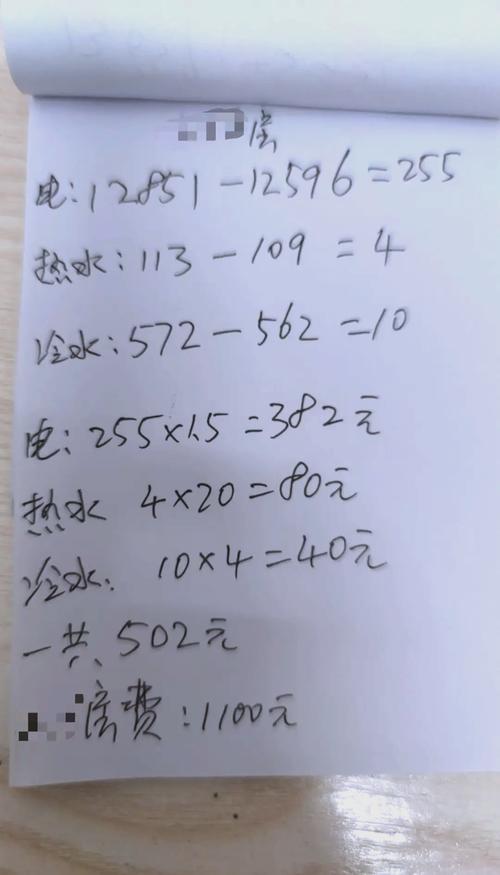 房
电:12851-12596=255
热水:113-109=4
冷水:572-562=10
电:255×1.5=382元
热水 4×20=80元
冷水. 10×4=40元
一共、502元
房费:1100元